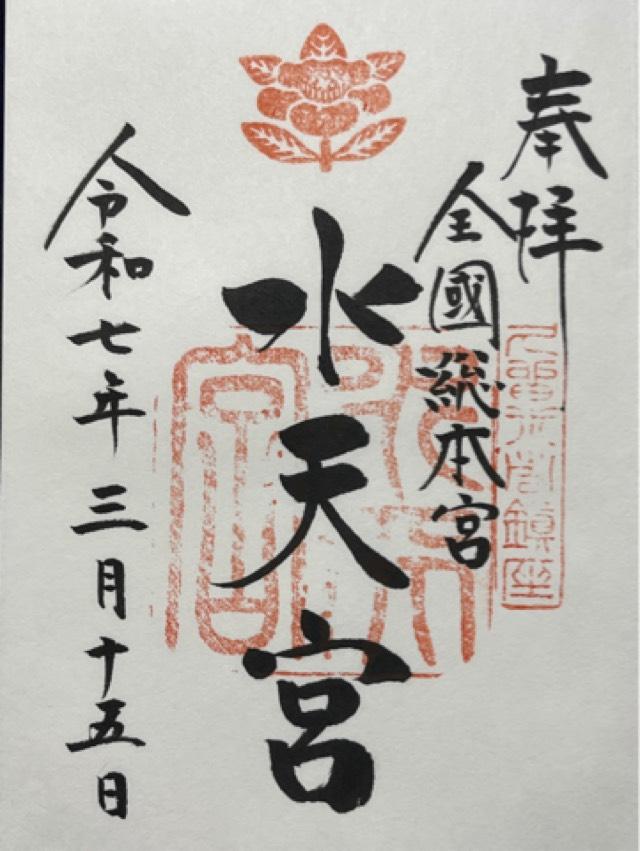 奉拝
全國総本宮
水天宮
令和七年三月十五日